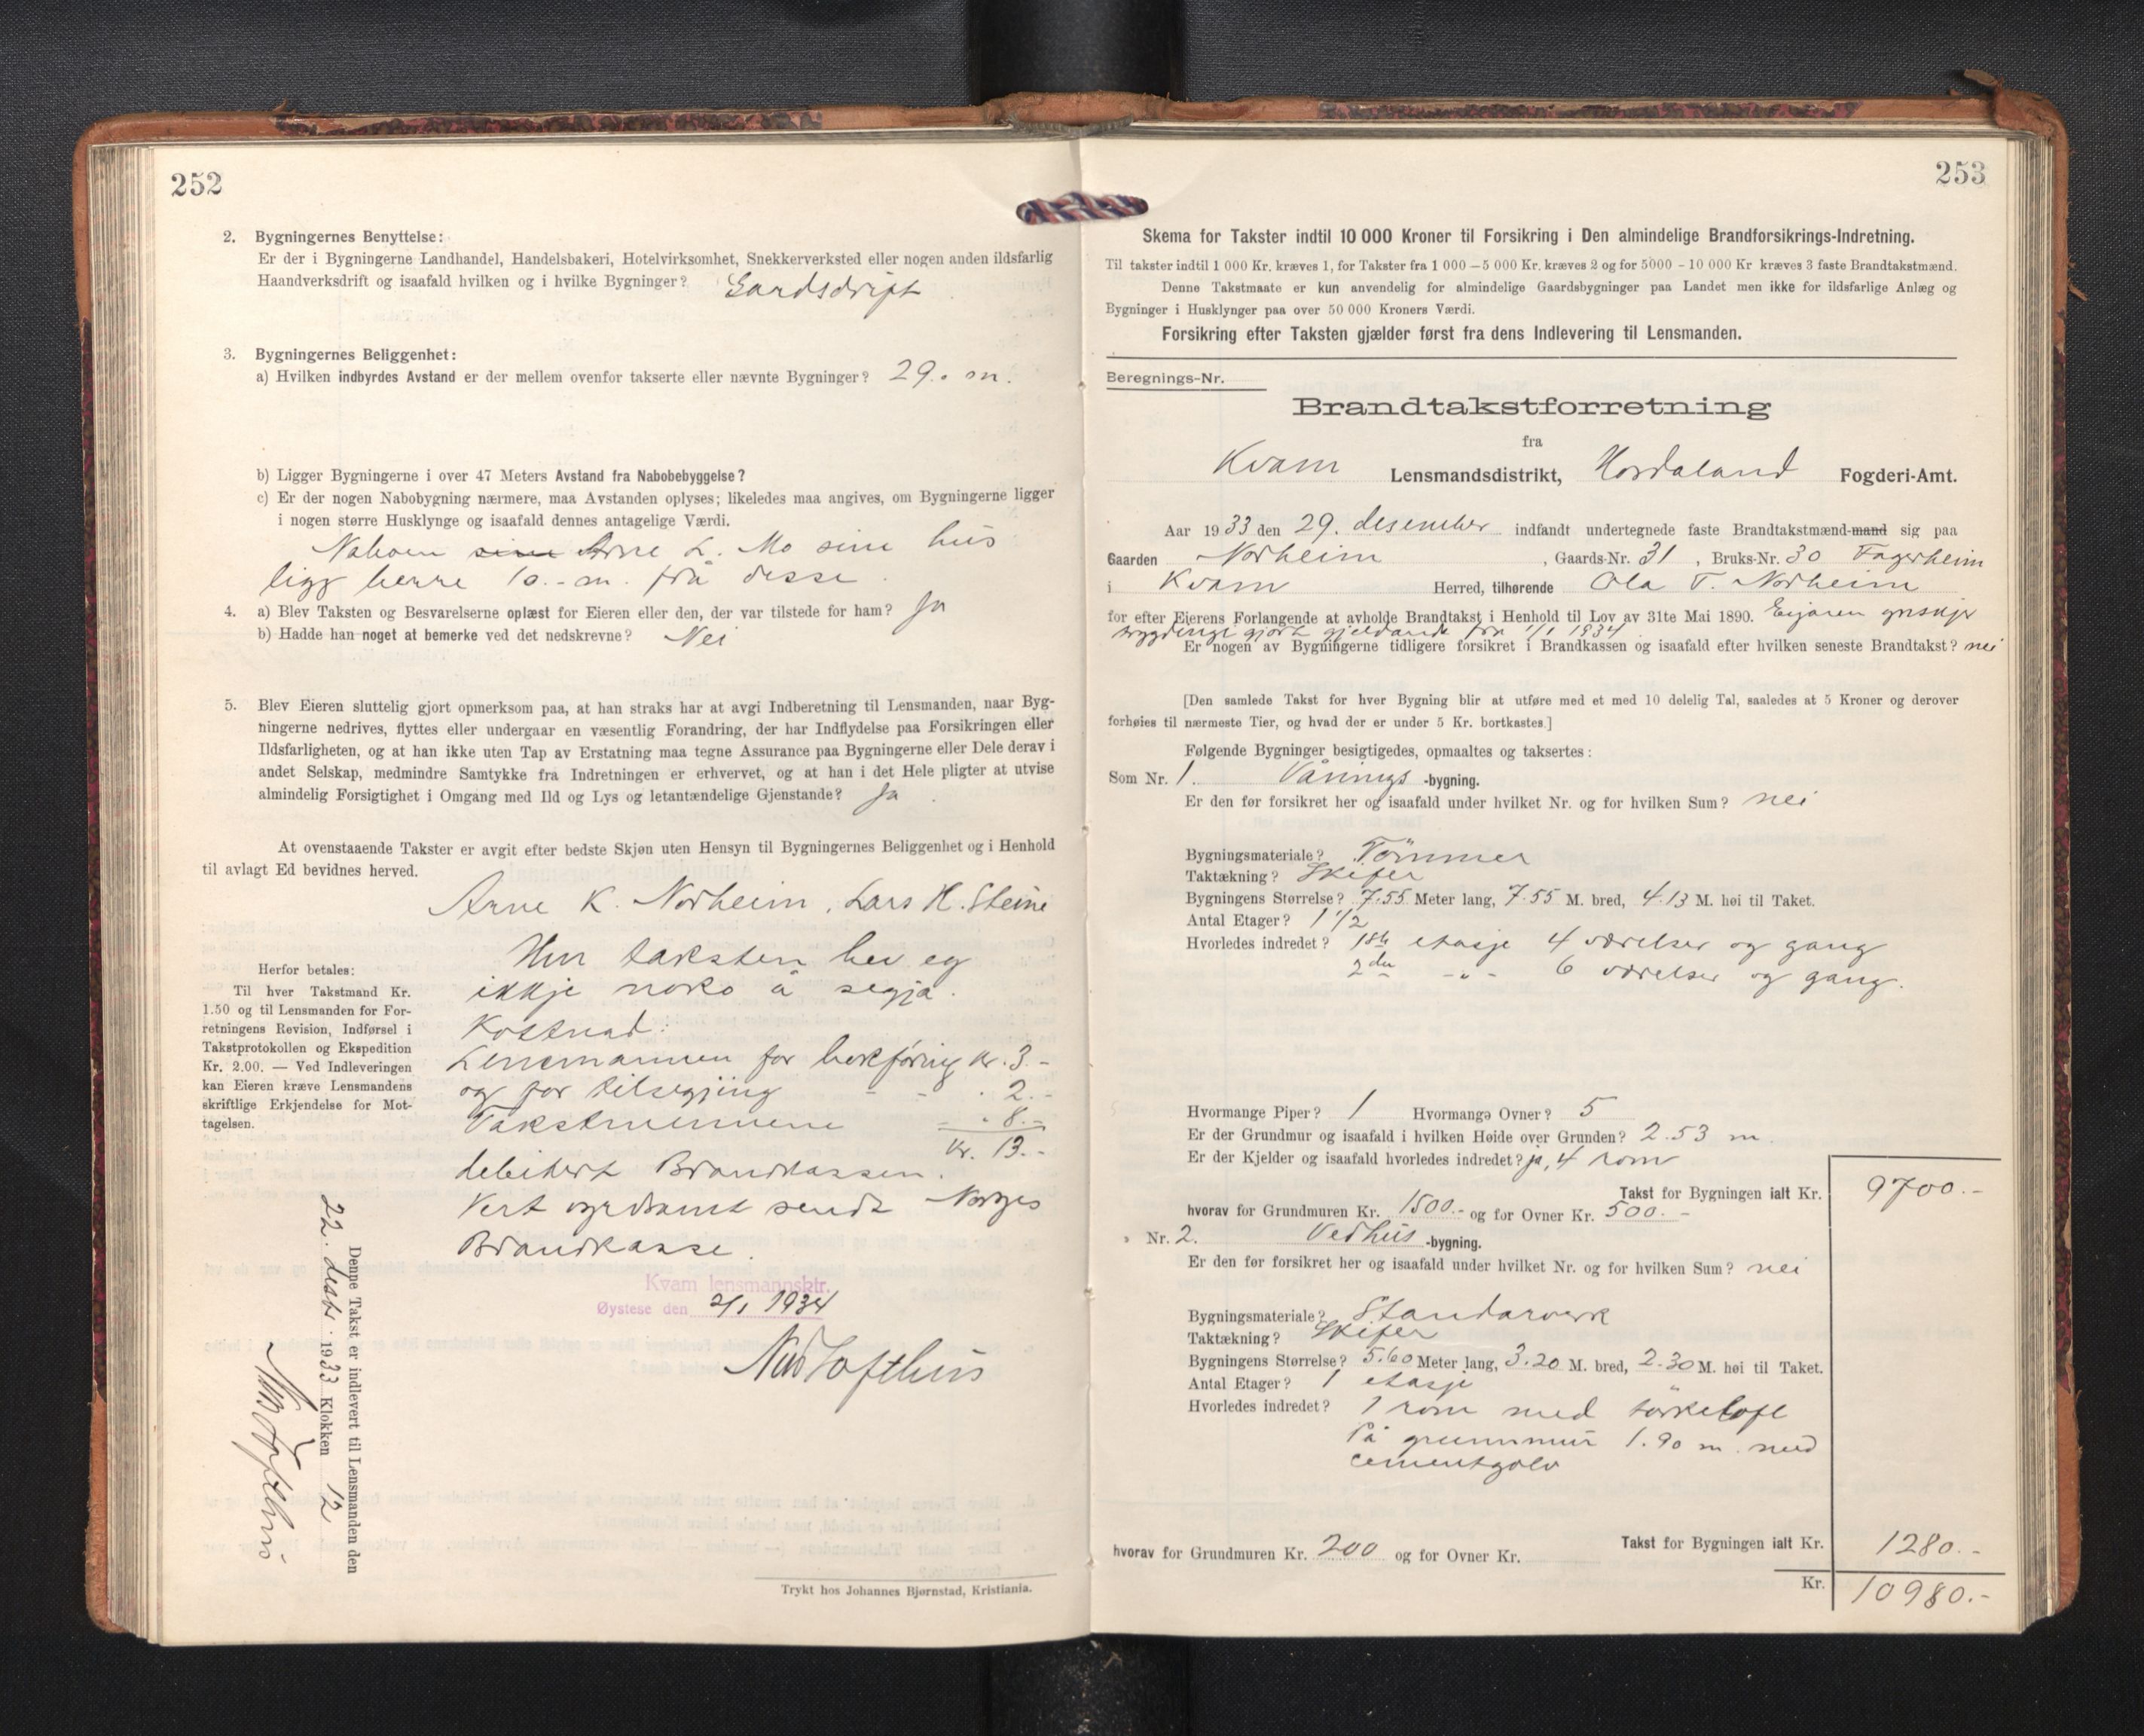 252
2. Bygningernes Benyttelse:
Er der i Bygningerne Landhandel, Handelsbakeri, Hotelvirksomhet, Snekkerverksted eller nogen anden ildsfarlig
Haandverksdrift og isaafald hvilken og i hvilke Bygninger? Gardsdrift
3. Bygningernes Beliggenhet:
a) Hvilken indbyrdes Avstand er der mellem ovenfor takserte eller nævnte Bygninger? 29. m.
b) Ligger Bygningerne i over 47 Meters Avstand fra Nabobebyggelse?
c) Er der nogen Nabobygning nærmere, maa Avstanden oplyses; likeledes maa angives, om Bygningerne ligger
i nogen større Husklynge og isaafald dennes antagelige Værdi.
Naboen sine Arne L. Mo sine hus
ligg berre 10.- m. frå desse.
4. a) Blev Taksten og Besvarelserne oplæst for Eieren eller den, der var tilstede for ham? Ja
b) Hadde han noget at bemerke ved det nedskrevne? Nei
5. Blev Eieren sluttelig gjort opmerksom paa, at han straks har at avgi Indberetning til Lensmanden, naar Byg-
ningerne nedrives, flyttes eller undergaar en væsentlig Forandring, der har Indflydelse paa Forsikringen eller
Ildsfarligheten, og at han ikke uten Tap av Erstatning maa tegne Assurance paa Bygningerne eller Dele derav i
andet Selskap, medmindre Samtykke fra Indretningen er erhvervet, og at han i det Hele pligter at utvise
almindelig Forsigtighet i Omgang med Ild og Lys og letantændelige Gjenstande? Ja
At ovenstaaende Takster er avgit efter bedste Skjøn uten Hensyn til Bygningernes Beliggenhet og i Henhold
til avlagt Ed bevidnes herved.
Arne K. Norheim, Lars H. Steine
Um taksten hev eg
ikkje noko å segja.
Kostnad:
Lensmannen for bokføring kr. 3.-
og for tilsegjing - - . 2.-
Takstmennene - . 8.-
kr. 13.-
debitert Brandkassen.
Vert sendt Norges
Brandkasse.
Kvam lensmannsktr.
Øystese den 2/1 1934
Nils Lofthus
Herfor betales:
Til hver Takstmand Kr.
1.50 og til Lensmanden for For-
retningens Revision, Indførsel i
Takstprotokollen og Ekspedition
Kr. 2.00. — Ved Indleveringen
kan Eieren kræve Lensmandens
skriftlige Erkjendelse for Mot-
tagelsen.
Denne Takst er indlevert til Lensmanden den
22. desbr. 1933 Klokken 12
Nils Lofthus
Trykt hos Johannes Bjørnstad, Kristiania.
253
Skema for Takster indtil 10 000 Kroner til Forsikring i Den almindelige Brandforsikrings-Indretning.
Til takster indtil 1 000 Kr. kræves 1, for Takster fra 1 000 — 5 000 Kr. kræves 2 og for 5000 - 10 000 Kr kræves 3 faste Brandtakstmænd.
Denne Takstmaate er kun anvendelig for almindelige Gaardsbygninger paa Landet men ikke for ildsfarlige Anlæg og
Bygninger i Husklynger paa over 50 000 Kroners Værdi.
Forsikring efter Taksten gjælder først fra dens Indlevering til Lensmanden.
Beregnings-Nr.
Brandtakstforretning
fra
Kvam Lensmandsdistrikt, Hordaland Fogderi-Amt.
Aar 1933 den 29. desember indfandt undertegnede faste Brandtakstmænd-mand sig paa
Gaarden Norheim, Gaards-Nr. 31, Bruks-Nr. 30 Fagerheim
i Kvam Herred, tilhørende Ola T. Norheim
for efter Eierens Forlangende at avholde Brandtakst i Henhold til Lov av 31te Mai 1890. Eigaren ynskjer
trygdinga gjort gjeldande frå 1/1 1934.
Er nogen av Bygningerne tidligere forsikret i Brandkassen og isaafald efter hvilken seneste Brandtakst? nei
[Den samlede Takst for hver Bygning blir at utføre med et med 10 delelig Tal, saaledes at 5 Kroner og derover
forhøies til nærmeste Tier, og hvad der er under 5 Kr. bortkastes.]
Følgende Bygninger besigtigedes, opmaaltes og taksertes:
Som Nr. 1. Vånings -bygning.
Er den før forsikret her og isaafald under hvilket Nr. og for hvilken Sum? nei
Bygningsmateriale? Tömmer
Taktækning? Skifer
Bygningens Størrelse? 7.55 Meter lang, 7.55 M. bred, 4.13 M. høi til Taket.
Antal Etager? 1 1/2
Hvorledes indredet? 1ste etasje 4 værelser og gang
2den -"- 6 værelser og gang.
Hvormange Piper? 1 Hvormange Ovner? 5
Er der Grundmur og isaafald i hvilken Høide over Grunden? 2.53 m.
Er der Kjelder og isaafald hvorledes indredet? ja, 4 rom
Takst for Bygningen ialt Kr. 9700.-
hvorav for Grundmuren Kr. 1500.- og for Ovner Kr. 500.-
» Nr. 2. Vedhus -bygning.
Er den før forsikret her og isaafald under hvilket Nr. og for hvilken Sum? nei
Bygningsmateriale? Standarverk
Taktækning? Skifer
Bygningens Størrelse? 5.60 Meter lang, 3.20 M. bred, 2.30 M. høi til Taket.
Antal Etager? 1 etasje
Hvorledes indredet? 1 rom med törkeloft
På grunnmur 1.90 m. med
cementgolv
Takst for Bygningen ialt Kr. 1280.-
hvorav for Grundmuren Kr. 200 og for Ovner Kr.
Kr. 10980.-